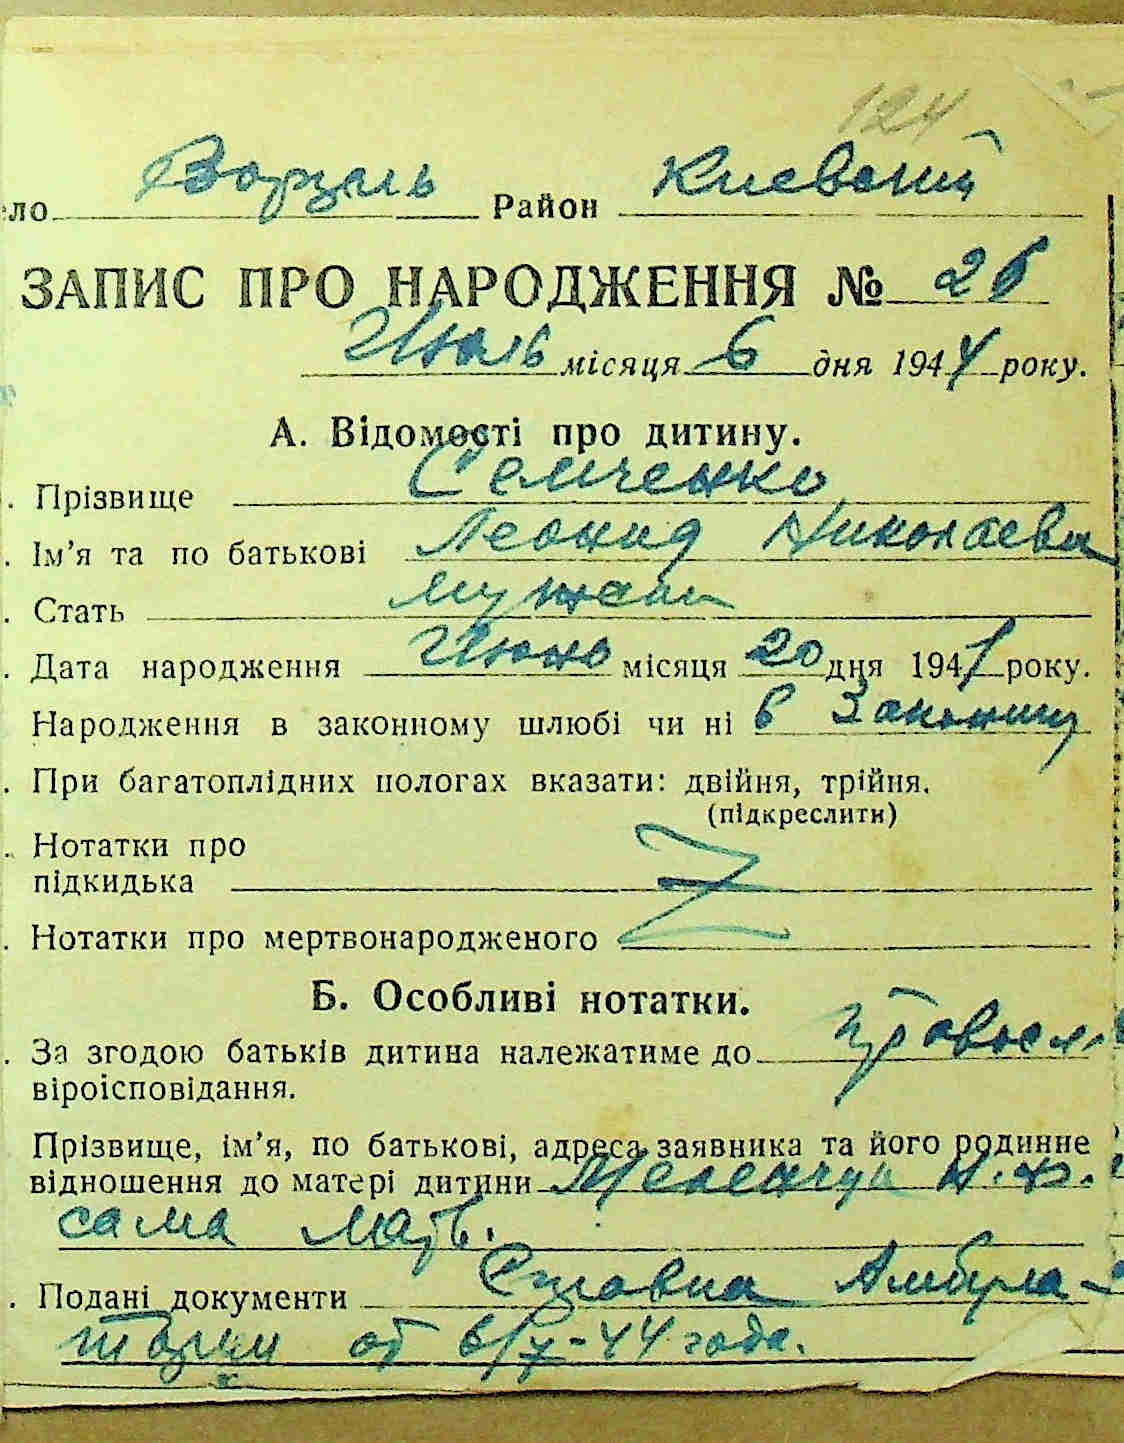 124
ло Ворзель Район Киевский
ЗАПИС ПРО НАРОДЖЕННЯ № 26
Июль місяця 6 дня 1944 року.
А. Відомості про дитину.
. Прізвище Семченко
. Ім’я та по батькові Леонид Николаеви
. Стать мужск
. Дата народження Июнь місяця 20 дня 1941 року.
Народження в законному шлюбі чи ні в законном
. При багатоплідних пологах вказати: двійня, трійня.
(підкреслити)
. Нотатки про
підкидька
. Нотатки про мертвонародженого
Б. Особливі нотатки.
. За згодою батьків дитина належатиме до правосл.
віроісповідання.
Прізвище, ім’я, по батькові, адреса заявника та його родинне
відношення до матері дитини
сама мать.
. Подані документи Справка Амбула-
тории от 6/7-44 года.